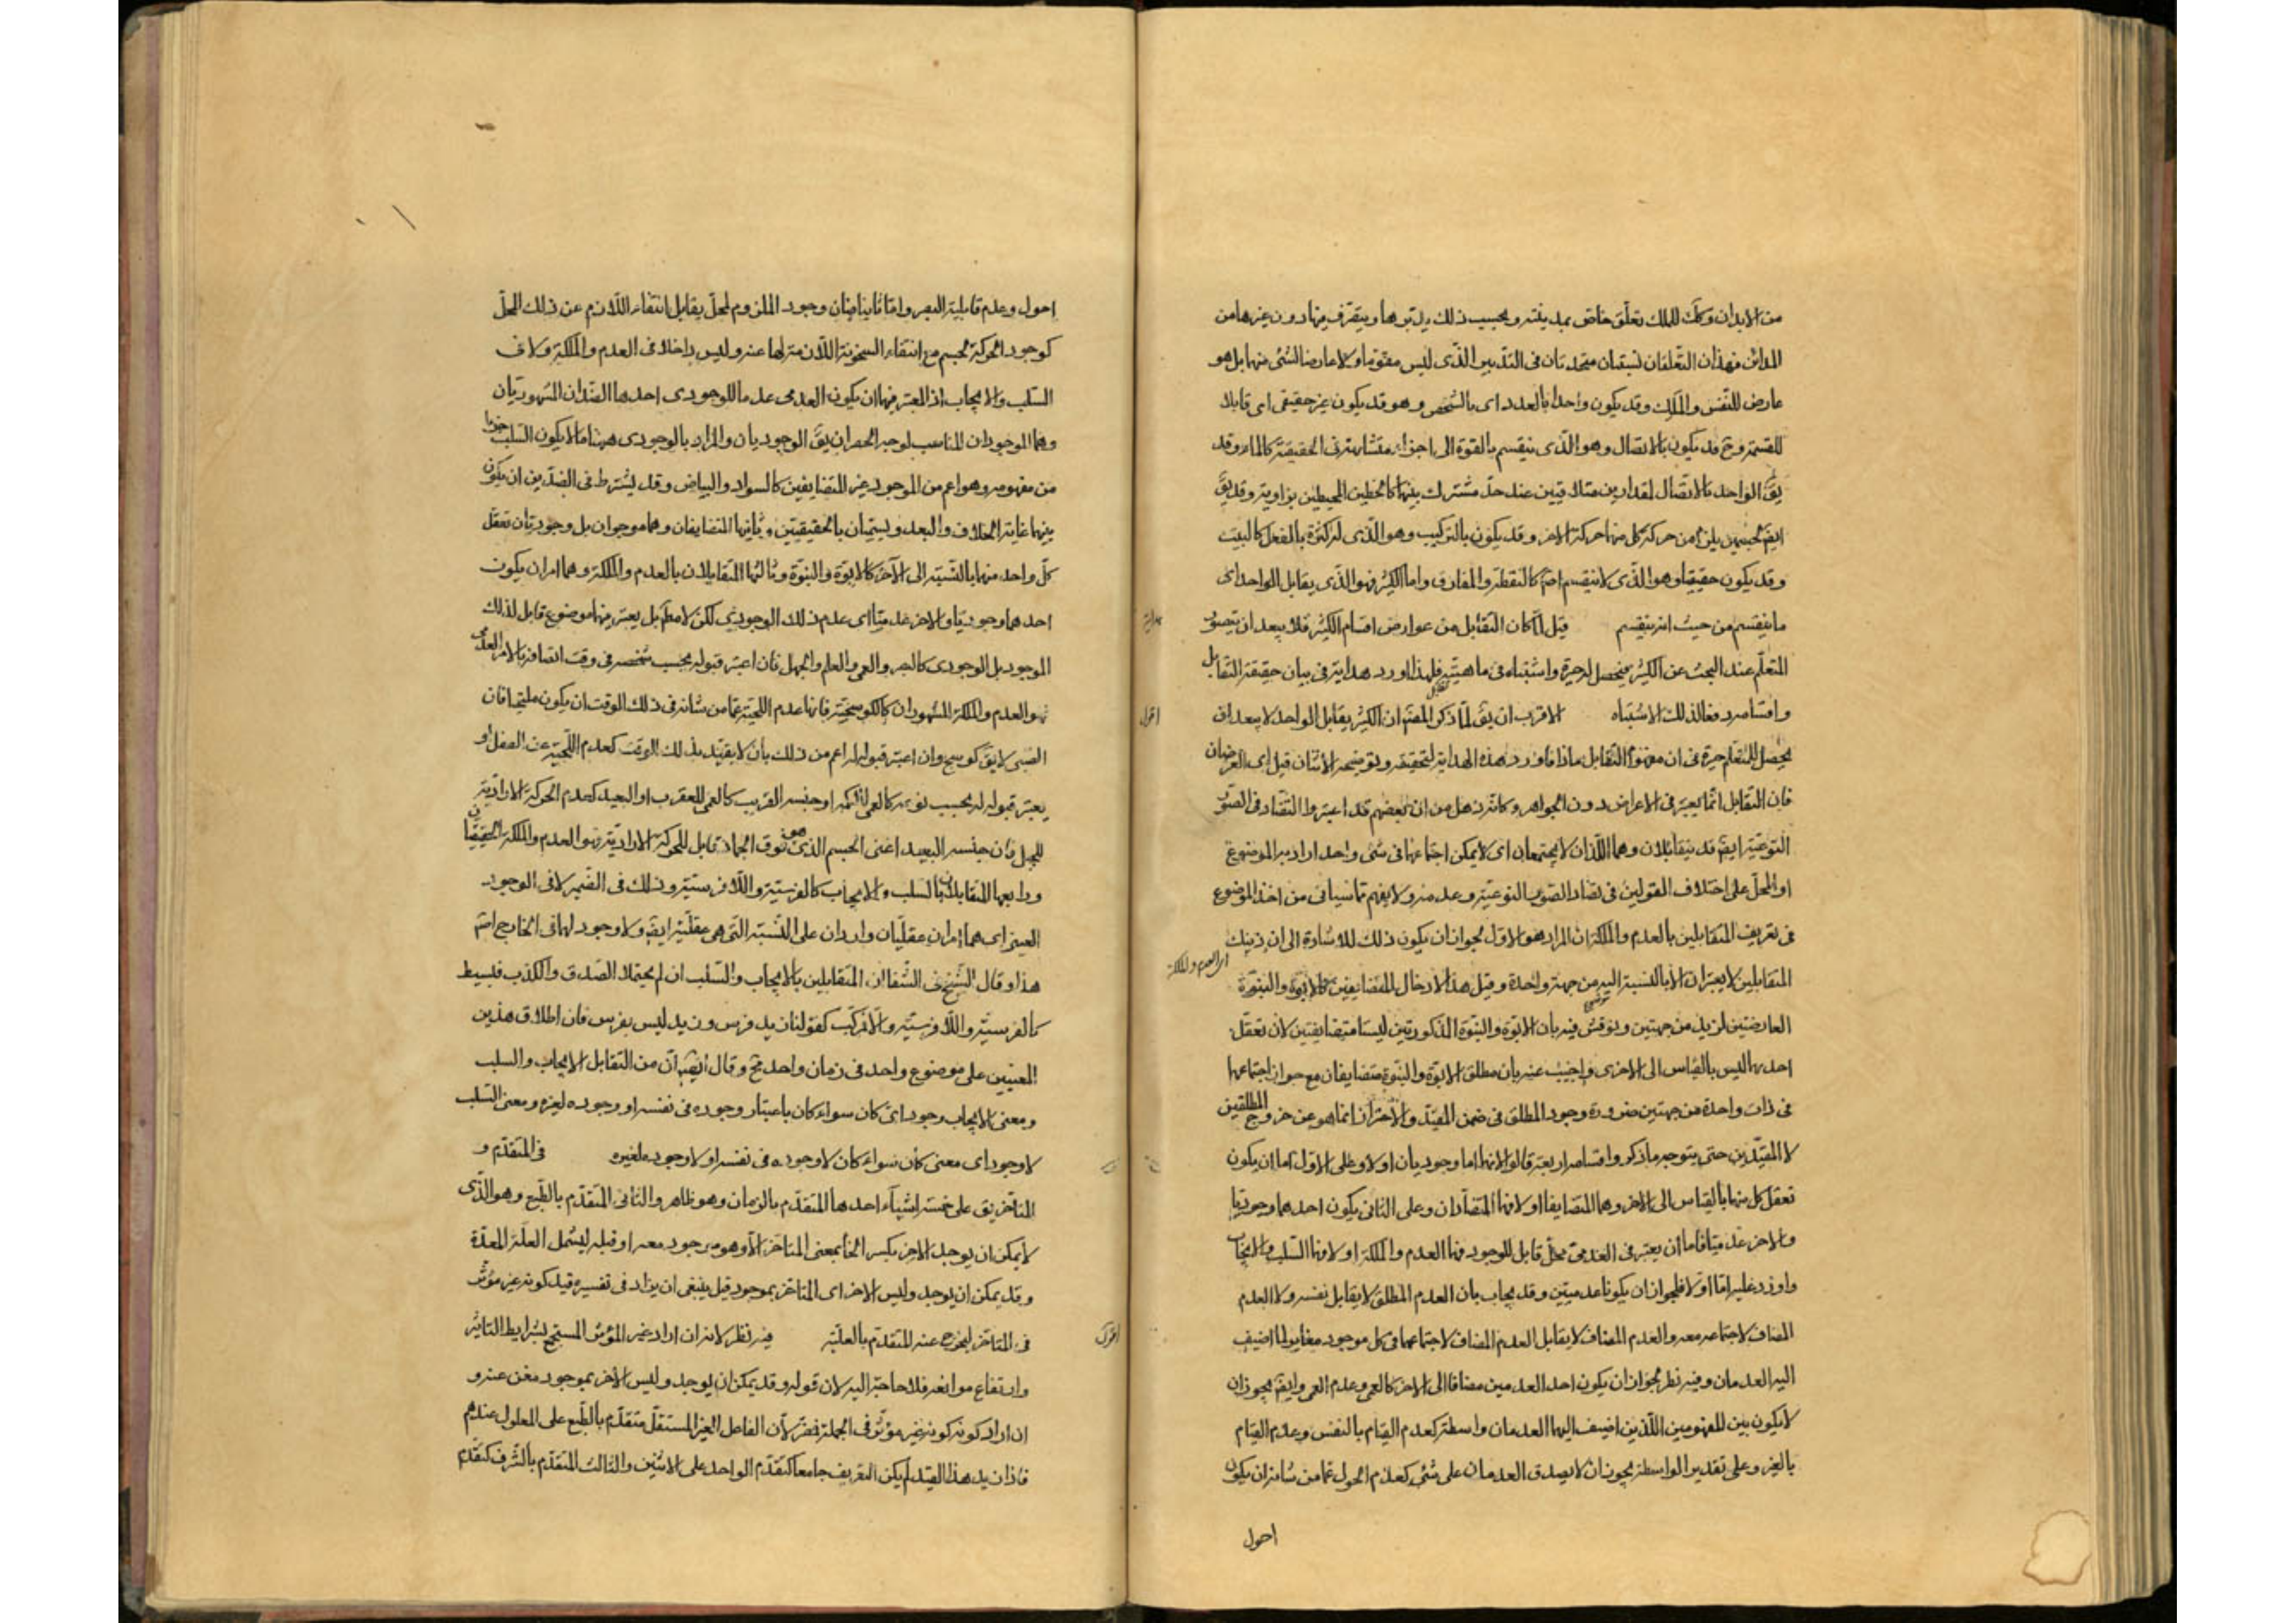 من الابدان وكك للملك تعلق خاص بمدينته وبحسب ذلك يدبرها ويتصرف فيها دون غيرها من
المدائن فهذان التعلقان نسبتان متحدتان في التدبير الذي ليس مقوما ولا عارضا لشئ منهما بل هو
عارض للنفس والملك وقد يكون واحدا بالعدد اى بالشخص وهو قد يكون غير حقيقى اى قابلا
للقسمة وح قد يكون بالاتصال وهو الذى ينقسم بالقوة الى اجزاء متشابهة في الحقيقة كالماء وقد
يق الواحد بالاتصال لمقدارين متلاقيين عند حد مشترك بينهما كالخطين المحيطين بزاوية وقد يق
ايض لجسمين يلزم من حركة كل منهما حركة الاخر وقد يكون بالتركيب وهو الذى له كثرة بالفعل كالبيت
وقد يكون حقيقيا وهو الذى لا ينقسم اصلا كالنقطة والمفارق واما الكثير فهو الذى يقابل الواحد اى
ما ينقسم من حيث انه ينقسم قيل لما كان التقابل من عوارض اقسام الكثير فلا يبعد ان يتصور
هداية
المتعلم عند البحث عن الكثير فيحصل له حيرة واشتباه في ماهيته فلهذا اورد هداية في بيان حقيقة التقابل
واقسامه دفعا لذلك الاشتباه الاقرب ان يق لما ذكر المصنف ان الكثير يقابل الواحد لا يبعد ان
اقول
يحصل للمتعلم حيرة في ان مفهوم التقابل ماذا فاورد هذه الهداية لتحقيقه وتوضيحه الاثنان قيل اى العرضان
فان التقابل انما يعتبر في الاعراض دون الجواهر وكانه ذهل من ان بعضهم قد اعتبروا التضاد في الصور
النوعية ايض قد يتقابلان وهما اللذان لا يجتمعان اى لا يمكن اجتماعهما في شئ واحد اراد به الموضوع
او المحل على اختلاف القولين في تضاد الصور النوعية وعدمه ولا يفهم مما سيأتى من اخذ الموضوع
في تعريف المتقابلين بالعدم والملكة ان المراد هو الاول لجواز ان يكون ذلك للاشارة الى ان ذينك
اى العدم والملكة
المتقابلين لا يعتبران الا بالنسبة اليه من جهة واحدة وقيل هذا لادخال المتضايفين كالابوة والبنوة
العارضتين لزيد من جهتين ونوقش فيه بان الابوة والبنوة المذكورتين ليستا متضايفتين لان تعقل
احديهما ليس بالقياس الى الاخرى واجيب عنه بان مطلق الابوة والبنوة متضايفان مع جواز اجتماعهما
في ذات واحدة من جهتين ضرورة وجود المطلق في ضمن المقيد والاحتراز انما هو عن خروج المطلقين
لا المقيدين حتى يتوجه ما ذكر واقسامه اربعة قالوا لانهما اما وجوديان او لا وعلى الاول اما ان يكون
تعقل كل منهما بالقياس الى الاخر وهما المتضايفا او لا فهما المتضادان وعلى الثانى يكون احدهما وجوديا
والاخر عدميا فاما ان يعتبر في العدمى محل قابل للوجود فهما العدم والملكة او لا فهما السلب والايجاب
واورد عليه اما اولا فلجواز ان يكونا عدميين وقد يجاب بان العدم المطلق لا يقابل نفسه ولا العدم
المضاف لاجتماعه معه والعدم المضاف لا يقابل العدم المضاف لاجتماعهما في كل موجود مغاير لما اضيف
اليه العدمان وفيه نظر لجواز ان يكون احد العدمين مضافا الى الاخر كالعمى وعدم العمى وايض يجوز ان
لا يكون بين المفهومين اللذين اضيف اليهما العدمان واسطة كعدم القيام بالنفس وعدم القيام
بالغير وعلى تقدير الواسطة يجوز ان لا يصدق العدمان على شئ كعدم الحول عما من شانه ان يكون
احول
احول وعدم قابلية البصر واما ثانيا فبان وجود الملزوم لمحل يقابل انتفاء اللازم عن ذلك المحل
كوجود الحركة لجسم مع انتفاء السخونة اللازمة لها عنه وليس داخلا في العدم والملكة ولا في
السلب والايجاب اذ المعتبر فيهما ان يكون العدمى عدما للوجودى احدها الضدان المشهوريان
وهما الموجودان المناسب لوجه الحصر ان يق الوجوديان والمراد بالوجودى ههنا ما لا يكون السلب جزءا
من مفهومه وهو اعم من الموجود غير المتضايفين كالسواد والبياض وقد يشترط في الضدين ان يكون
بينهما غاية الخلاف والبعد ويسميان بالحقيقيين وثانيها المتضايفان وهما موجوان بل وجوديان تعقل
كل واحد منهما بالنسبة الى الآخر كالابوة والبنوة وثالثها المتقابلان بالعدم والملكة وهما امران يكون
احدهما وجوديا والاخر عدميا اى عدم ذلك الوجودي لكن لا مطلقا بل يعتبر فيهما موضوع قابل لذلك
الموجود بل الوجودى كالبصر والعمى والعلم والجهل فان اعتبر قبوله بحسب شخصه في وقت اتصافه بالامر العدمى
فهو العدم والملكة المشهوران كالكوسجية فانها عدم اللحية عما من شانه في ذلك الوقت ان يكون ملتحيا فان
الصبى لا يق كوسج وان اعتبر قبوله اعم من ذلك بان لا يقيد بذلك الوقت كعدم اللحية عن الطفل او
يعتبر قبوله له بحسب نوعه كالعمى للاكمه او جنسه القريب كالعمى للعقرب او البعيد كعدم الحركة الارادية
للجبل فان جنسه البعيد اعنى الجسم الذى هو فوق الجماد قابل للحركة الارادية فهو العدم والملكة الحقيقيان
ورابعها المتقابلان بالسلب والايجاب كالفرسية واللافرسية وذلك في الضمير لا في الوجود
العينى اى هما امران عقليان واردان على النسبة التى هى عقلية ايض ولا وجود لهما في الخارج اصلا
هذا وقال الشيخ في الشفا ان المتقابلين بالايجاب والسلب ان لم يحتملا الصدق والكذب فبسيط
كالفرسية واللافرسية والا فمركب كقولنا زيد فرس وزيد ليس بفرس فان اطلاق هذين
المعنيين على موضوع واحد في زمان واحد مح وقال ايض ان من التقابل الايجاب والسلب
ومعنى الايجاب وجود اى كان سواء كان باعتبار وجوده في نفسه او وجوده لغيره ومعنى السلب
لا وجود اى معنى كان سواء كان لا وجوده في نفسه او لا وجوده لغيره في المتقدم و
المتاخر يق على خمسة اشياء احدها المتقدم بالزمان وهو ظاهر والثانى المتقدم بالطبع وهو الذى
لا يمكن ان يوجد الاخر بكسر الخا بمعنى المتاخر الا وهو موجود معه او قبله ليشمل العلة المعدة
وقد يمكن ان يوجد وليس الاخر اى المتاخر بموجود قيل ينبغى ان يزاد في تفسيره قيد كونه غير مؤثر
في المتاخر ليخرج عنه المتقدم بالعلية فيه نظر لانه ان اراد غير المؤثر المستجمع لشرايط التاثير
اقول
وارتفاع موانعه فلا حاجة اليه لان قوله وقد يمكن ان يوجد وليس الاخر بموجود مغن عنه و
ان اراد كونه غير مؤثر في الجملة فمضر لان الفاعل الغير المستقل متقدم بالطبع على المعلول عندهم
فاذا زيد هذا القيد لم يكن التعريف جامعا كتقدم الواحد على الاثنين والثالث المتقدم بالشرف كتقدم